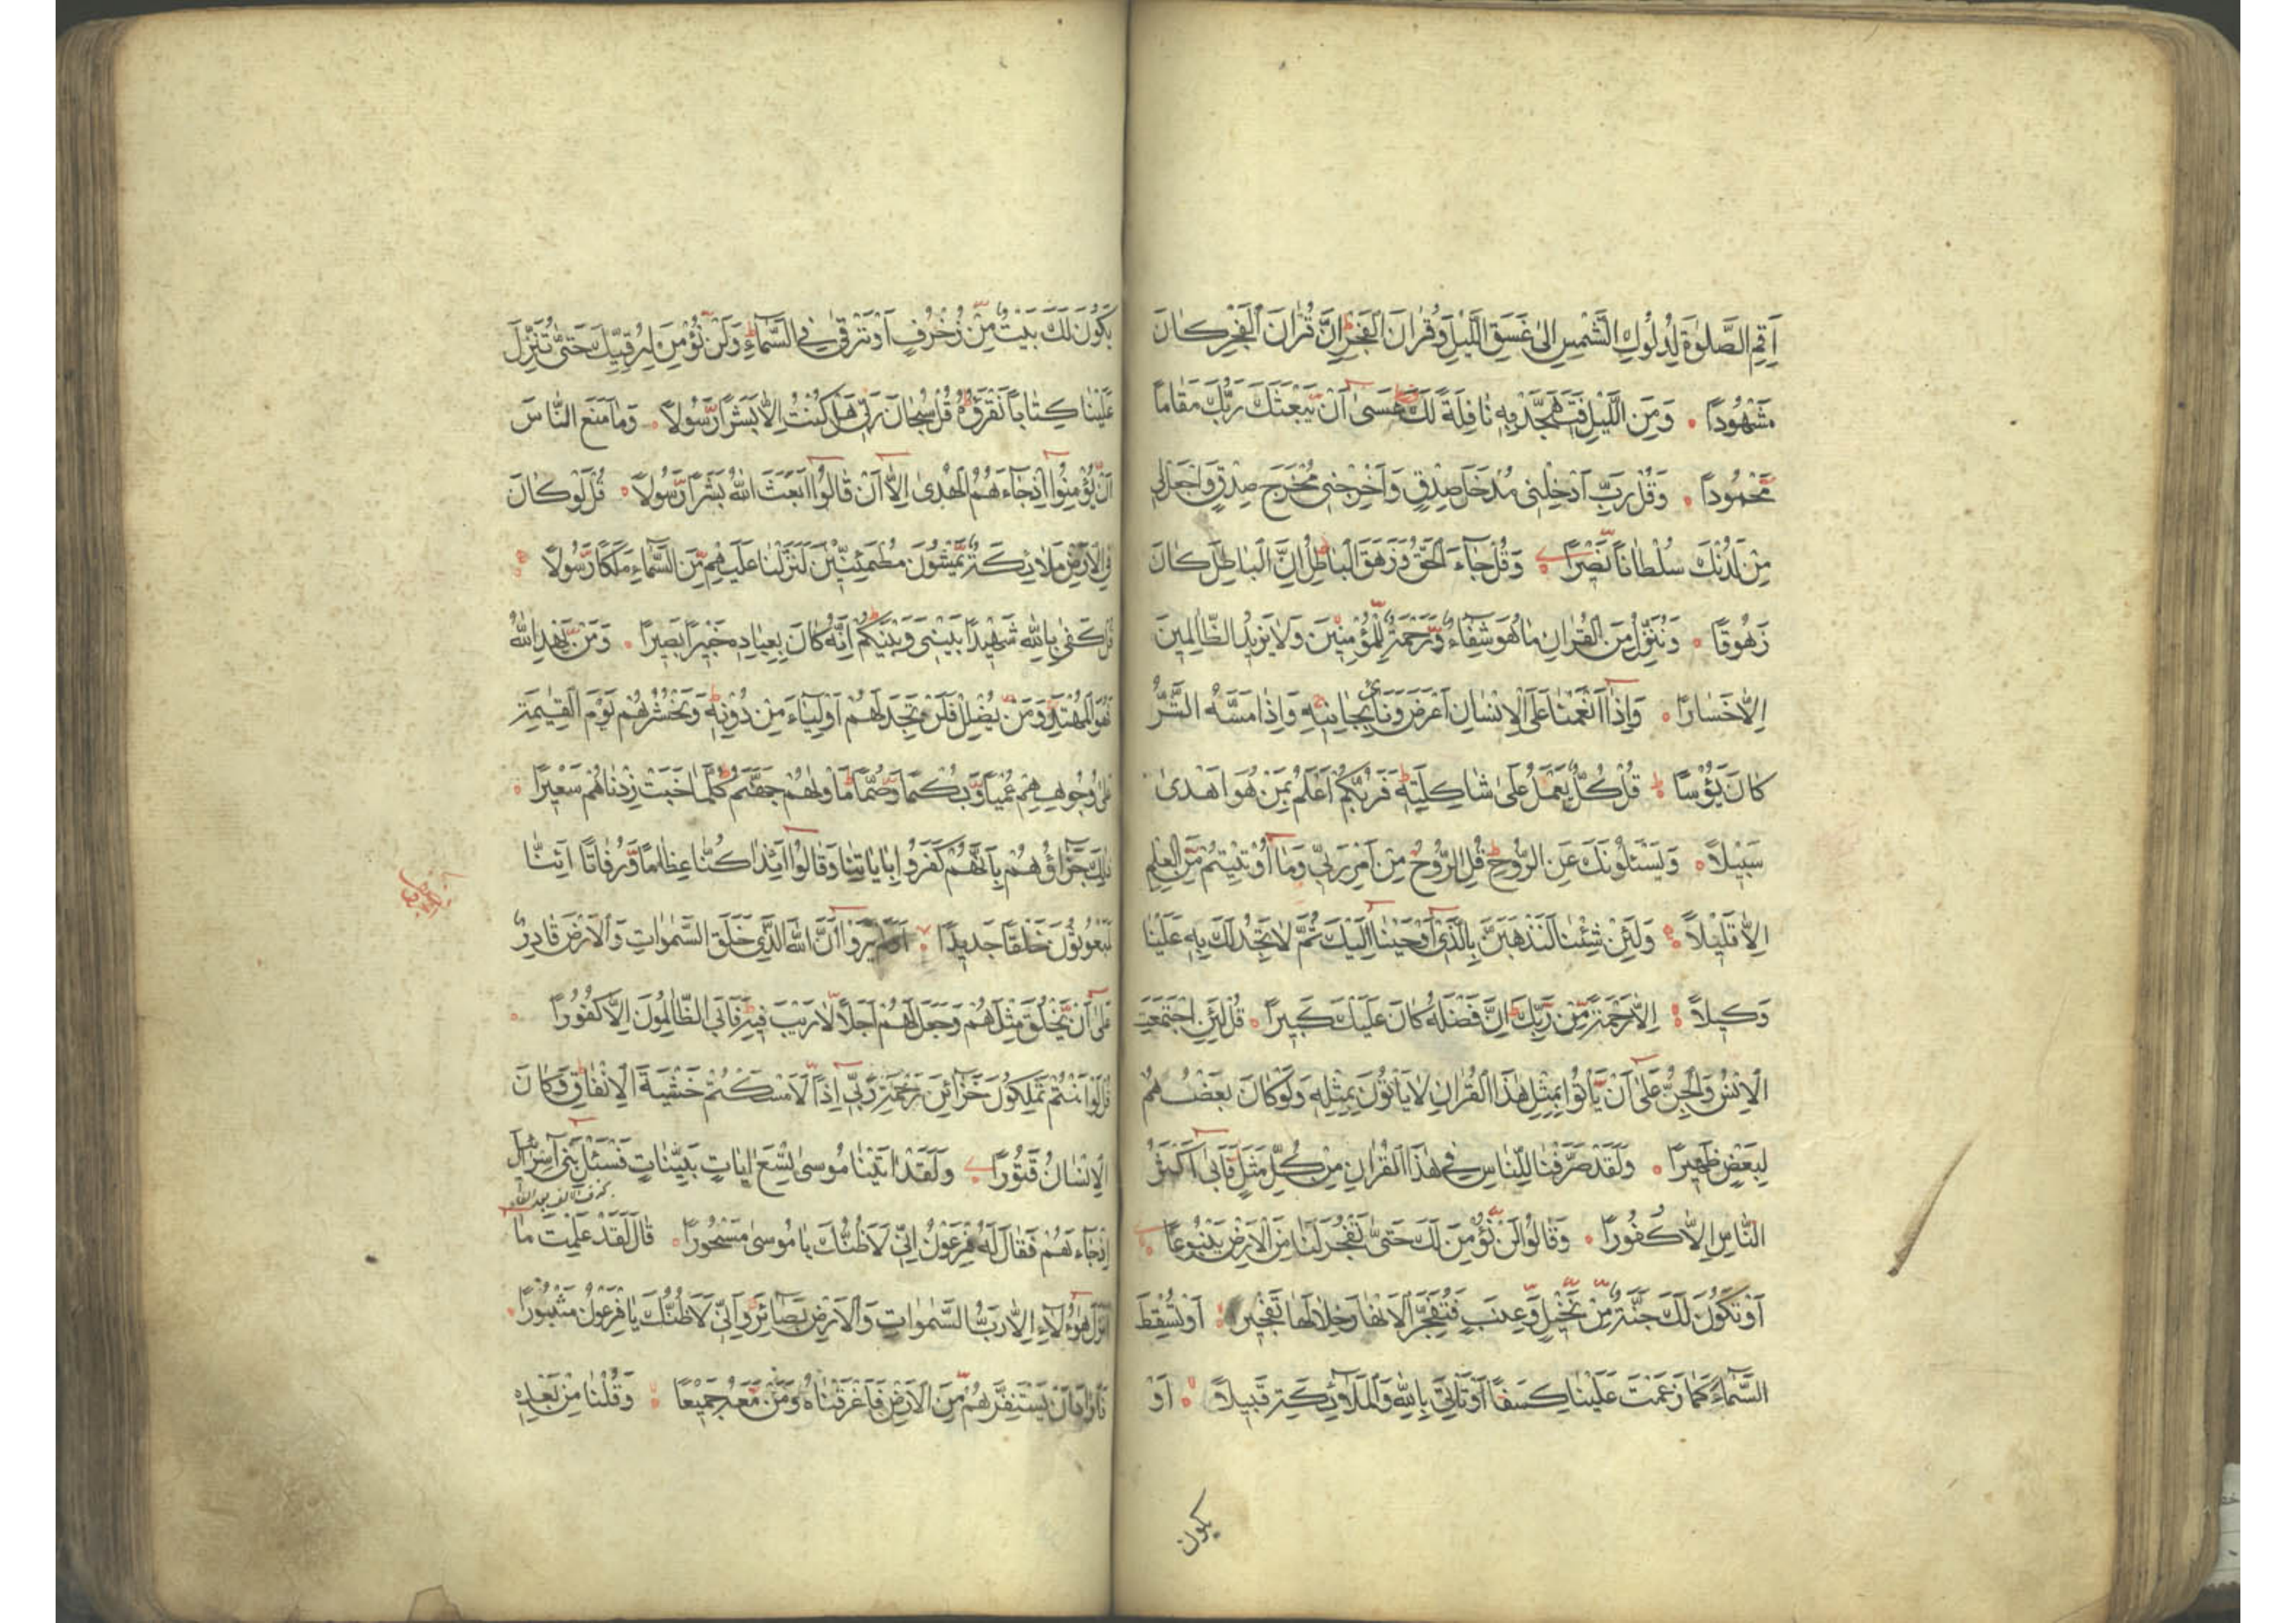 اَقِمِ الصَّلٰوةَ لِدُلُوكِ الشَّمْسِ اِلٰى غَسَقِ الَّيْلِ وَقُرْاٰنَ الْفَجْرِ اِنَّ قُرْاٰنَ الْفَجْرِ كَانَ
مَشْهُودًا وَمِنَ الَّيْلِ فَتَهَجَّدْ بِهٖ نَافِلَةً لَكَ عَسٰى اَنْ يَبْعَثَكَ رَبُّكَ مَقَامًا
مَحْمُودًا وَقُلْ رَبِّ اَدْخِلْنِى مُدْخَلَ صِدْقٍ وَاَخْرِجْنِى مُخْرَجَ صِدْقٍ وَاجْعَلْ لِى
مِنْ لَدُنْكَ سُلْطَانًا نَصِيرًا وَقُلْ جَاءَ الْحَقُّ وَزَهَقَ الْبَاطِلُ اِنَّ الْبَاطِلَ كَانَ
زَهُوقًا وَنُنَزِّلُ مِنَ الْقُرْاٰنِ مَا هُوَ شِفَاءٌ وَرَحْمَةٌ لِلْمُؤْمِنِينَ وَلَا يَزِيدُ الظَّالِمِينَ
اِلَّا خَسَارًا وَاِذَا اَنْعَمْنَا عَلَى الْاِنْسَانِ اَعْرَضَ وَنَاٰى بِجَانِبِهٖ وَاِذَا مَسَّهُ الشَّرُّ
كَانَ يَؤُسًا قُلْ كُلٌّ يَعْمَلُ عَلٰى شَاكِلَتِهٖ فَرَبُّكُمْ اَعْلَمُ بِمَنْ هُوَ اَهْدٰى
سَبِيلًا وَيَسْئَلُونَكَ عَنِ الرُّوحِ قُلِ الرُّوحُ مِنْ اَمْرِ رَبِّى وَمَا اُوتِيتُمْ مِنَ الْعِلْمِ
اِلَّا قَلِيلًا وَلَئِنْ شِئْنَا لَنَذْهَبَنَّ بِالَّذِى اَوْحَيْنَا اِلَيْكَ ثُمَّ لَا تَجِدُ لَكَ بِهٖ عَلَيْنَا
وَكِيلًا اِلَّا رَحْمَةً مِنْ رَبِّكَ اِنَّ فَضْلَهُ كَانَ عَلَيْكَ كَبِيرًا قُلْ لَئِنِ اجْتَمَعَتِ
الْاِنْسُ وَالْجِنُّ عَلٰى اَنْ يَأْتُوا بِمِثْلِ هٰذَا الْقُرْاٰنِ لَا يَأْتُونَ بِمِثْلِهٖ وَلَوْ كَانَ بَعْضُهُمْ
لِبَعْضٍ ظَهِيرًا وَلَقَدْ صَرَّفْنَا لِلنَّاسِ فِى هٰذَا الْقُرْاٰنِ مِنْ كُلِّ مَثَلٍ فَاَبٰى اَكْثَرُ
النَّاسِ اِلَّا كُفُورًا وَقَالُوا لَنْ نُؤْمِنَ لَكَ حَتّٰى تَفْجُرَ لَنَا مِنَ الْاَرْضِ يَنْبُوعًا
اَوْ تَكُونَ لَكَ جَنَّةٌ مِنْ نَخِيلٍ وَعِنَبٍ فَتُفَجِّرَ الْاَنْهَارَ خِلَالَهَا تَفْجِيرًا اَوْ تُسْقِطَ
السَّمَاءَ كَمَا زَعَمْتَ عَلَيْنَا كِسَفًا اَوْ تَأْتِىَ بِاللّٰهِ وَالْمَلٰئِكَةِ قَبِيلًا اَوْ
يكون
يَكُونَ لَكَ بَيْتٌ مِنْ زُخْرُفٍ اَوْ تَرْقٰى فِى السَّمَاءِ وَلَنْ نُؤْمِنَ لِرُقِيِّكَ حَتّٰى تُنَزِّلَ
عَلَيْنَا كِتَابًا نَقْرَؤُهُ قُلْ سُبْحَانَ رَبِّى هَلْ كُنْتُ اِلَّا بَشَرًا رَسُولًا وَمَا مَنَعَ النَّاسَ
اَنْ يُؤْمِنُوا اِذْ جَاءَهُمُ الْهُدٰى اِلَّا اَنْ قَالُوا اَبَعَثَ اللّٰهُ بَشَرًا رَسُولًا قُلْ لَوْ كَانَ
فِى الْاَرْضِ مَلَائِكَةٌ يَمْشُونَ مُطْمَئِنِّينَ لَنَزَّلْنَا عَلَيْهِمْ مِنَ السَّمَاءِ مَلَكًا رَسُولًا
قُلْ كَفٰى بِاللّٰهِ شَهِيدًا بَيْنِى وَبَيْنَكُمْ اِنَّهُ كَانَ بِعِبَادِهٖ خَبِيرًا بَصِيرًا وَمَنْ يَهْدِ اللّٰهُ
فَهُوَ الْمُهْتَدِ وَمَنْ يُضْلِلْ فَلَنْ تَجِدَ لَهُمْ اَوْلِيَاءَ مِنْ دُونِهٖ وَنَحْشُرُهُمْ يَوْمَ الْقِيٰمَةِ
عَلٰى وُجُوهِهِمْ عُمْيًا وَبُكْمًا وَصُمًّا مَأْوٰيهُمْ جَهَنَّمُ كُلَّمَا خَبَتْ زِدْنَاهُمْ سَعِيرًا
ذٰلِكَ جَزَاؤُهُمْ بِاَنَّهُمْ كَفَرُوا بِاٰيَاتِنَا وَقَالُوا ءَاِذَا كُنَّا عِظَامًا وَرُفَاتًا ءَاِنَّا
لَمَبْعُوثُونَ خَلْقًا جَدِيدًا اَوَلَمْ يَرَوْا اَنَّ اللّٰهَ الَّذِى خَلَقَ السَّمٰوَاتِ وَالْاَرْضَ قَادِرٌ
عَلٰى اَنْ يَخْلُقَ مِثْلَهُمْ وَجَعَلَ لَهُمْ اَجَلًا لَا رَيْبَ فِيهِ فَاَبَى الظَّالِمُونَ اِلَّا كُفُورًا
قُلْ لَوْ اَنْتُمْ تَمْلِكُونَ خَزَائِنَ رَحْمَةِ رَبِّى اِذًا لَاَمْسَكْتُمْ خَشْيَةَ الْاِنْفَاقِ وَكَانَ
الْاِنْسَانُ قَتُورًا وَلَقَدْ اٰتَيْنَا مُوسٰى تِسْعَ اٰيَاتٍ بَيِّنَاتٍ فَسْئَلْ بَنِى اِسْرَائِلَ
اِذْ جَاءَهُمْ فَقَالَ لَهُ فِرْعَوْنُ اِنِّى لَاَظُنُّكَ يَا مُوسٰى مَسْحُورًا قَالَ لَقَدْ عَلِمْتَ مَا
اَنْزَلَ هٰؤُلَاءِ اِلَّا رَبُّ السَّمٰوَاتِ وَالْاَرْضِ بَصَائِرَ وَاِنِّى لَاَظُنُّكَ يَا فِرْعَوْنُ مَثْبُورًا
فَاَرَادَ اَنْ يَسْتَفِزَّهُمْ مِنَ الْاَرْضِ فَاَغْرَقْنَاهُ وَمَنْ مَعَهُ جَمِيعًا وَقُلْنَا مِنْ بَعْدِهٖ